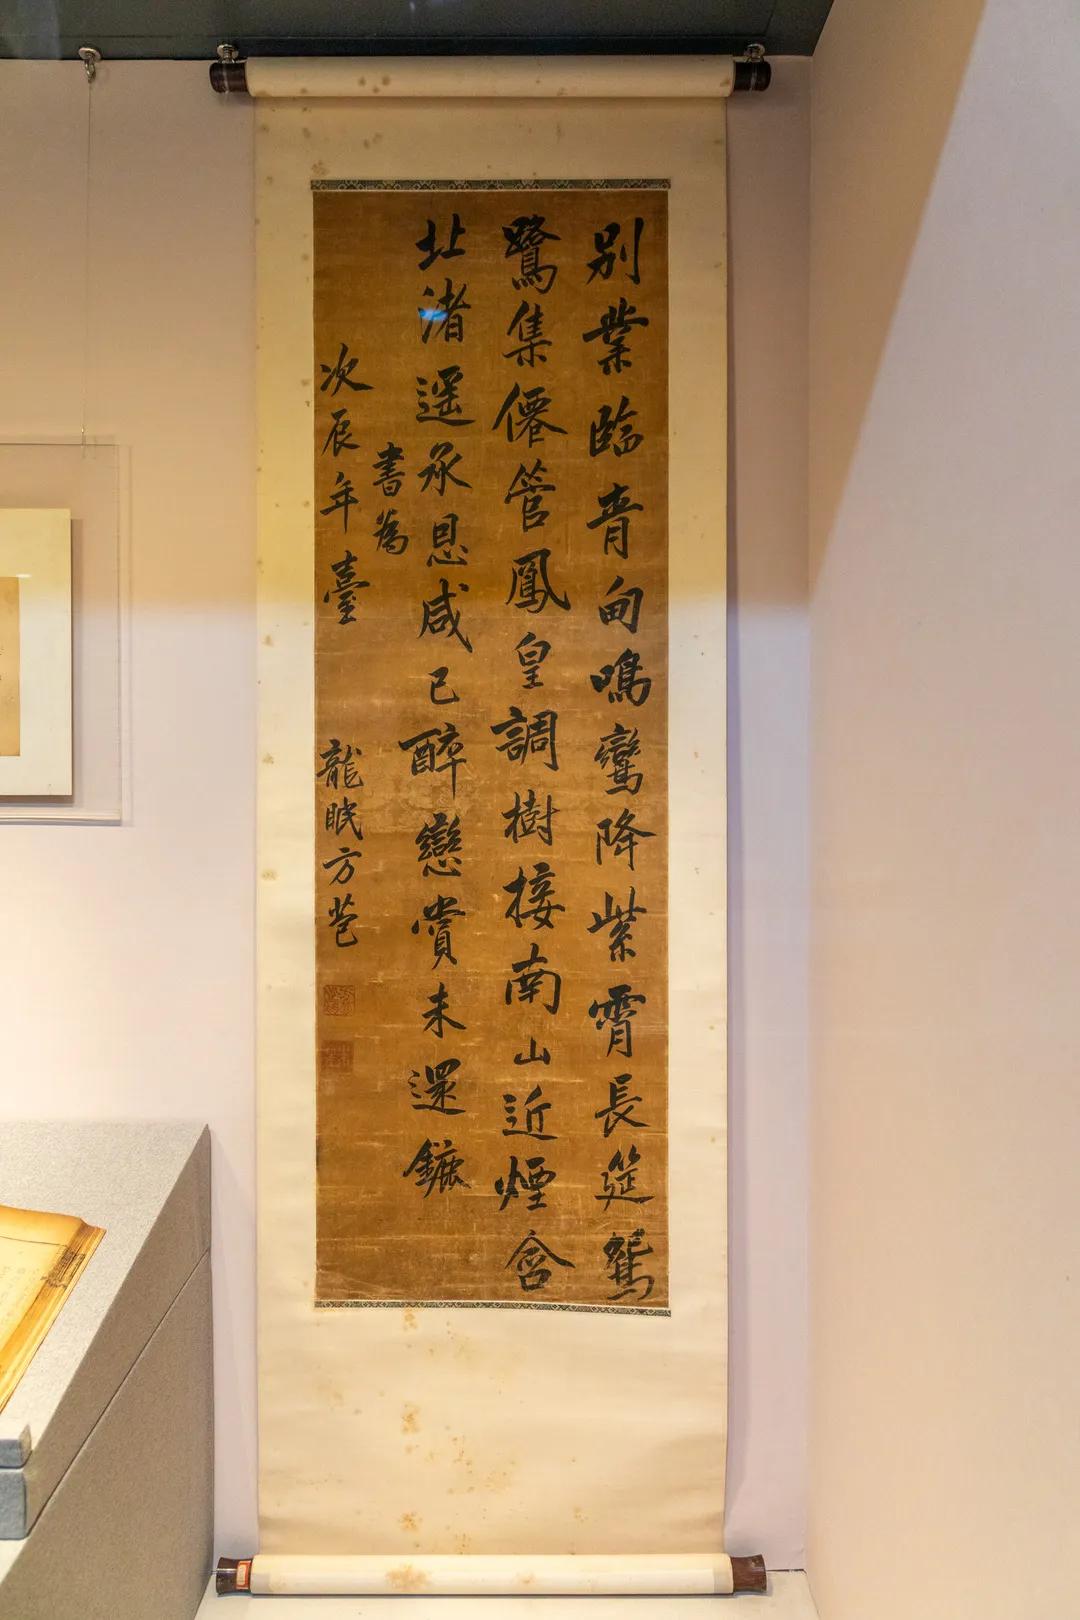 别業臨青甸鳴鸞降紫霄長筵鴛
鷺集僊管鳳皇調樹接南山近煙含
北渚遥承恩咸已醉戀賞未還鑣
書為
次辰年臺 龍眠方苞